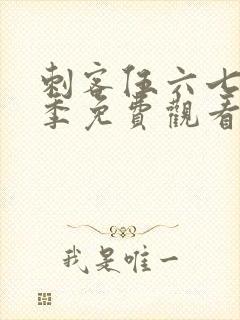 刺客伍六七
季免費觀看
我是唯一